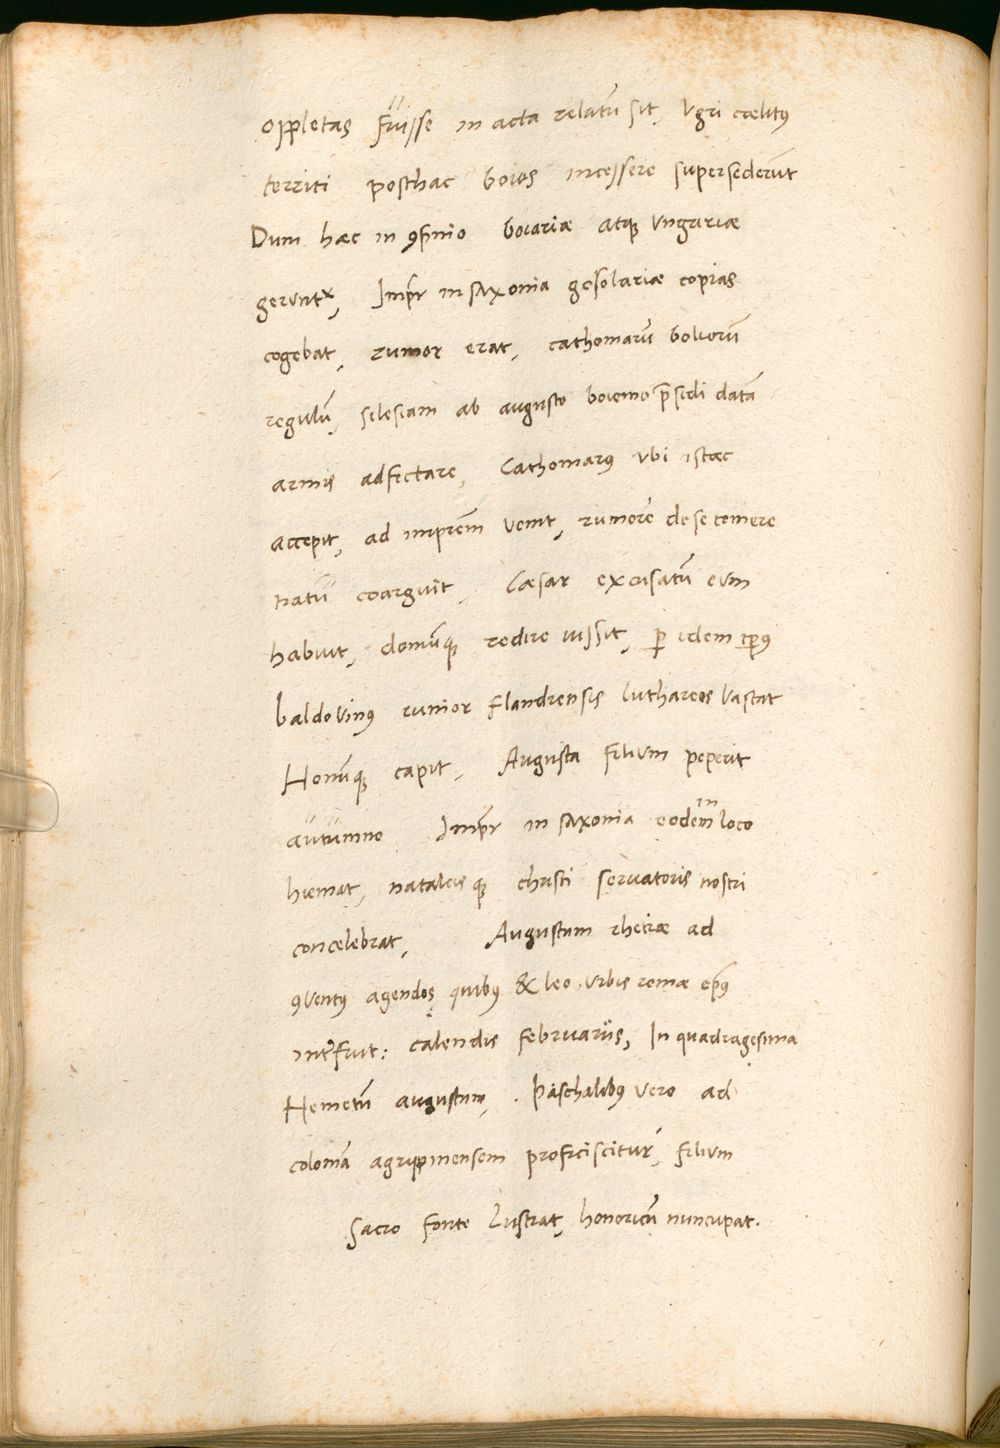 oppletas fuisse in acta relatũ sit, Vgri cælitꝰ
territi posthac boios incessere supersederũt
Dum hæc in ꝯfinio boiariæ atqꝫ Vngariæ
gerunt᷑, Imp̃r in saxonia gosolariæ copias
cogebat, rumor erat, cathomarũ boliorũ
regulũ, silesiam ab augusto boiemo p̃sidi datã
armis adfectare, Cathomarꝰ vbi istæc
accepit, ad imp̃rem venit, rumorẽ de se temere
natũ coarguit, Cæsar excusatũ eum
habuit, domũqꝫ redire iussit, ꝑ idem tp̃ꝰ
baldovinꝰ iunior flandrensis luthareos vastat
Honũqꝫ capit, Augusta filium peperit
autumno Imp̃r in saxonia eodem in loco
hiemat, nataleis qꝫ christi servatoris nostri
concelebrat, Augustum rhetiæ ad
ꝯventꝰ agendos quibꝰ & leo vrbis romæ ep̃ꝰ
interfuit: calendis februariis, In quadragesima
Hemetũ augustum, . Paschalibꝰ vero ad
coloniã agrippinensem proficiscitur, filium
sacro fonte lustrat, honoricũ nuncupat.